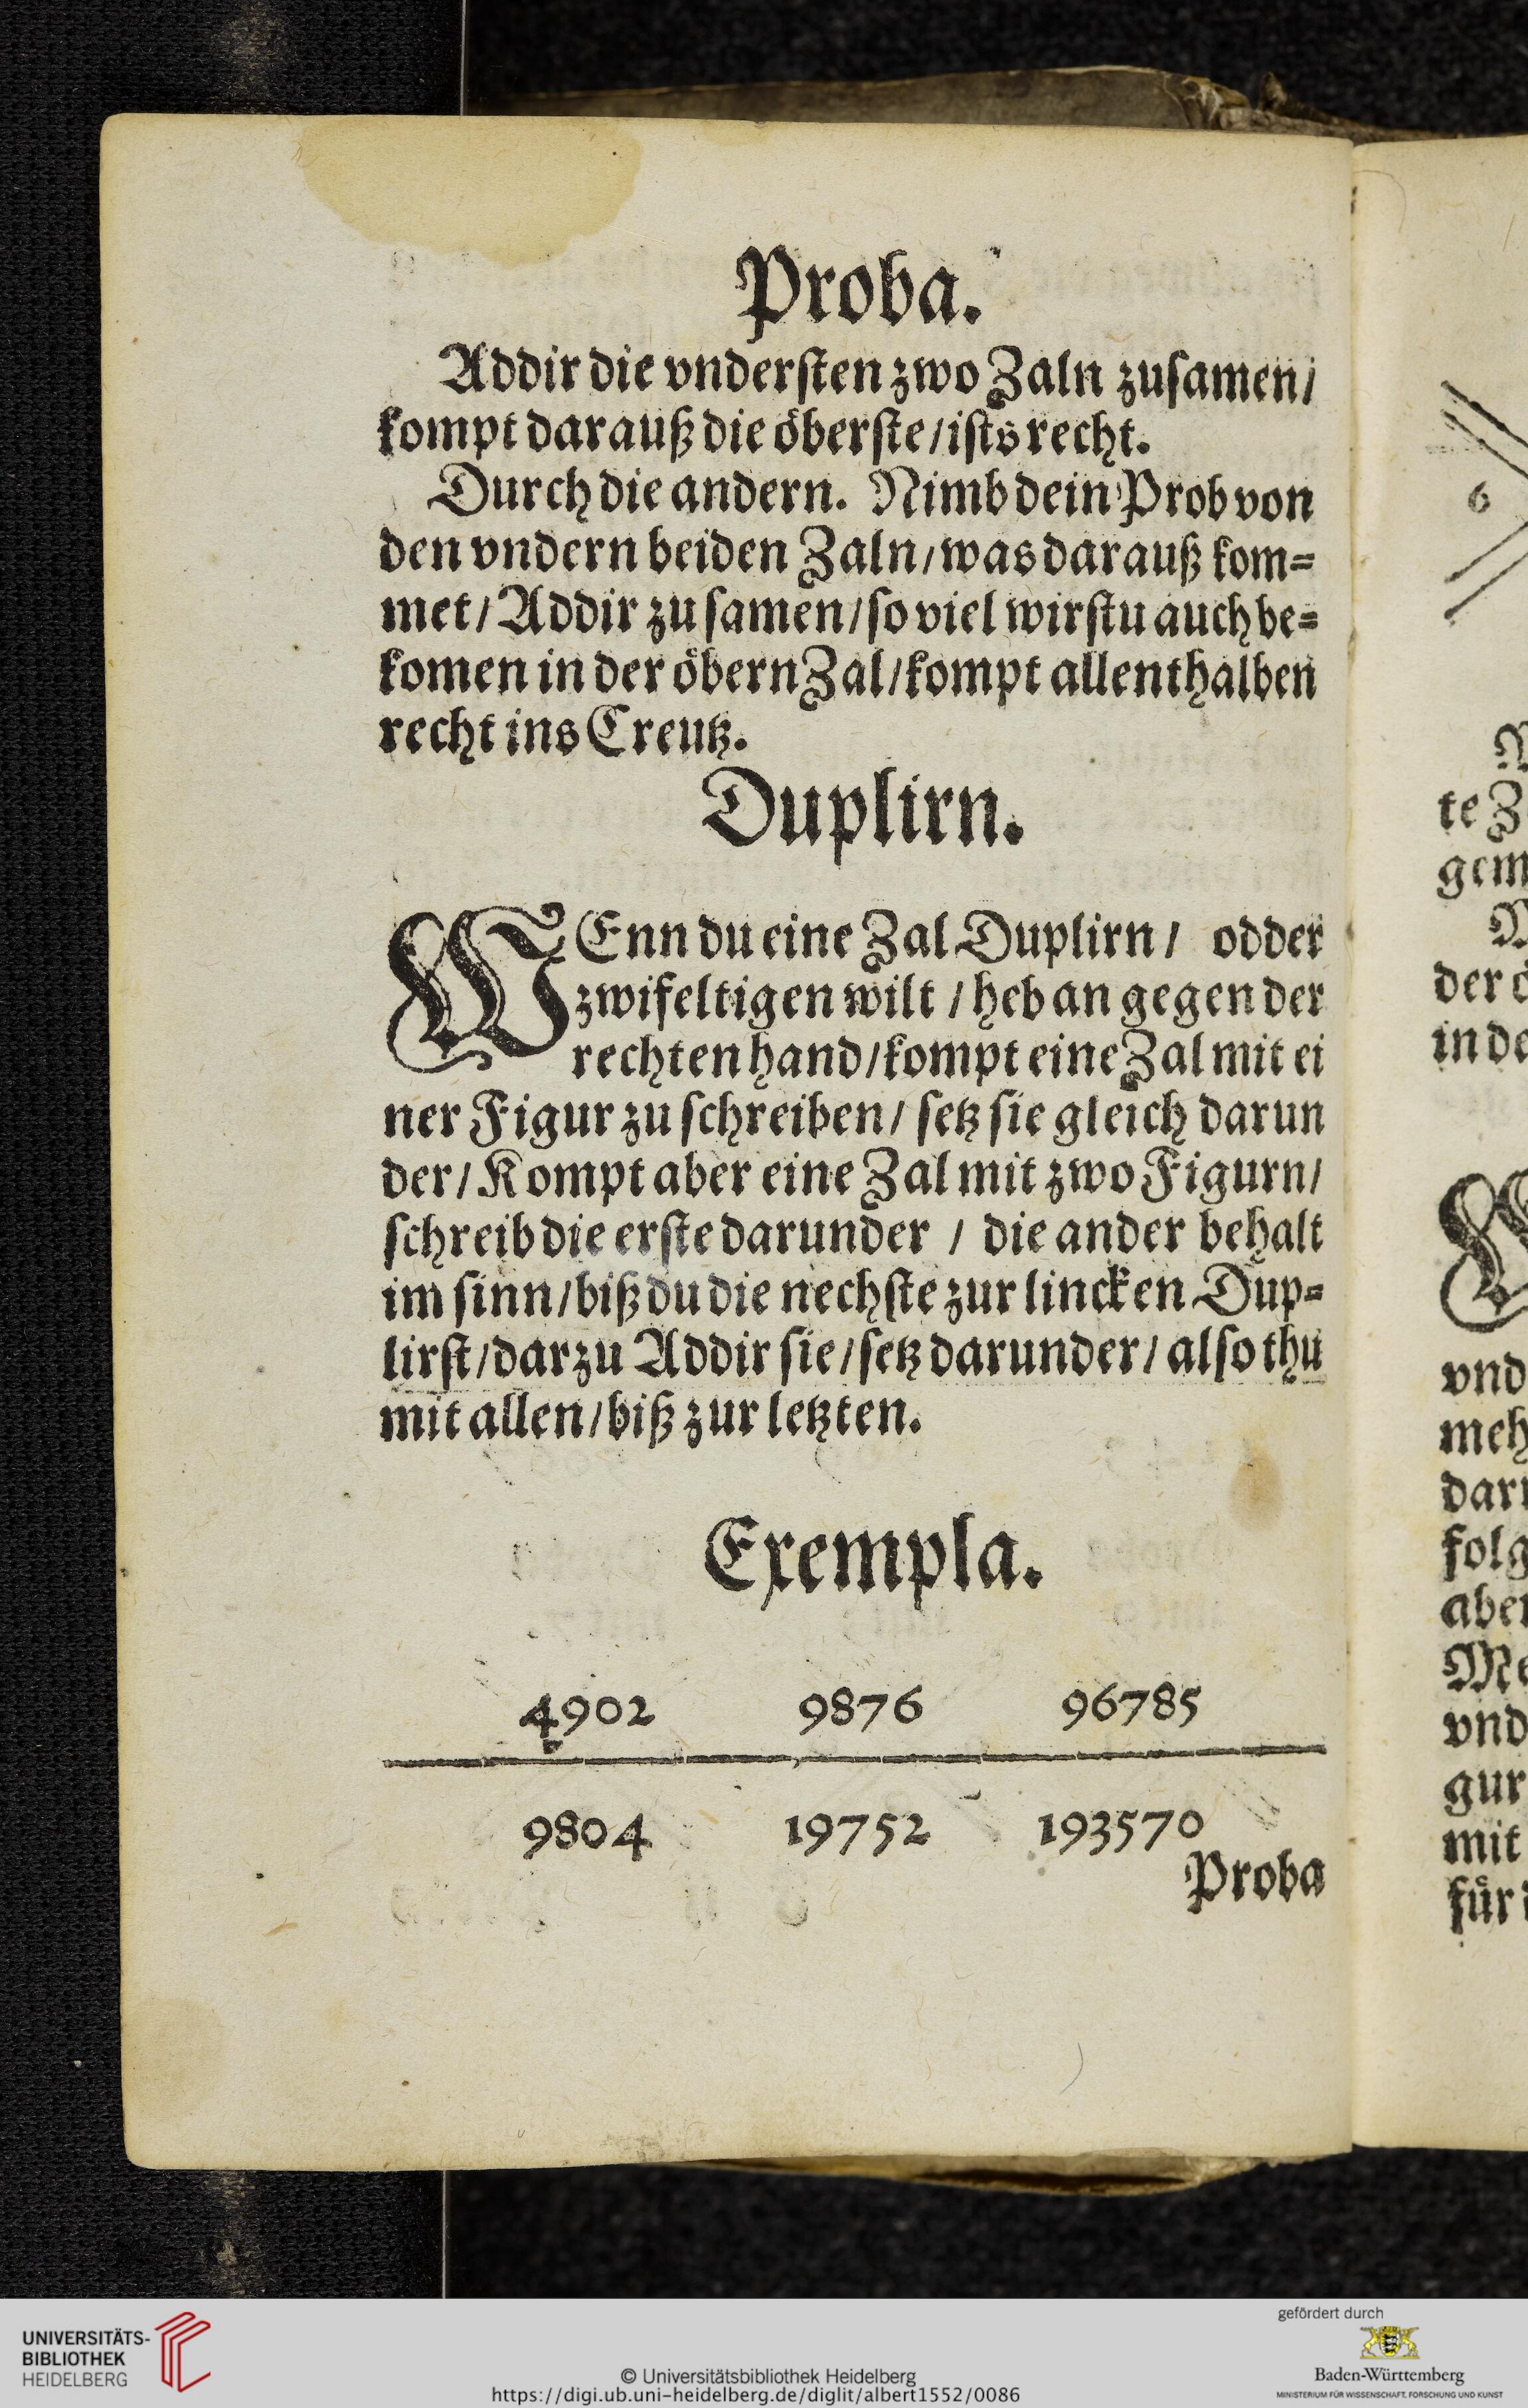 Proba.
Addir die vndersten zwo Zaln zusamen/
kompt darauß die öberste/ists recht.
Durch die andern. Nimb dein Prob von
den vndern beiden Zaln/was darauß kom=
met/Addir zu samen/so viel wirstu auch be=
komen in der öbern Zal/kompt allenthalben
recht ins Creutz.
Duplirn.
WEnn du eine Zal Duplirn/ odder
zwifeltigen wilt/heb an gegen der
rechten hand/kompt eine Zal mit ei
ner Figur zu schreiben/setz sie gleich darun
der/Kompt aber eine Zal mit zwo Figurn/
schreib die erste darunder / die ander behalt
im sinn/biß du die nechste zur lincken Dup=
lirst/darzu Addir sie/setz darunder/also thu
mit allen/biß zur letzten.
Exempla.
4902 9876 96785
9804 19752 193570
Proba
6
te Z
gem
der ö
in de
vnd
meh
folg
aber
vnd
gur
mit
für
UNIVERSITÄTS-
BIBLIOTHEK
HEIDELBERG
© Universitätsbibliothek Heidelberg
https://digi.ub.uni-heidelberg.de/diglit/albert1552/0086
gefördert durch
Baden-Württemberg
MINISTERIUM FÜR WISSENSCHAFT, FORSCHUNG UND KUNST